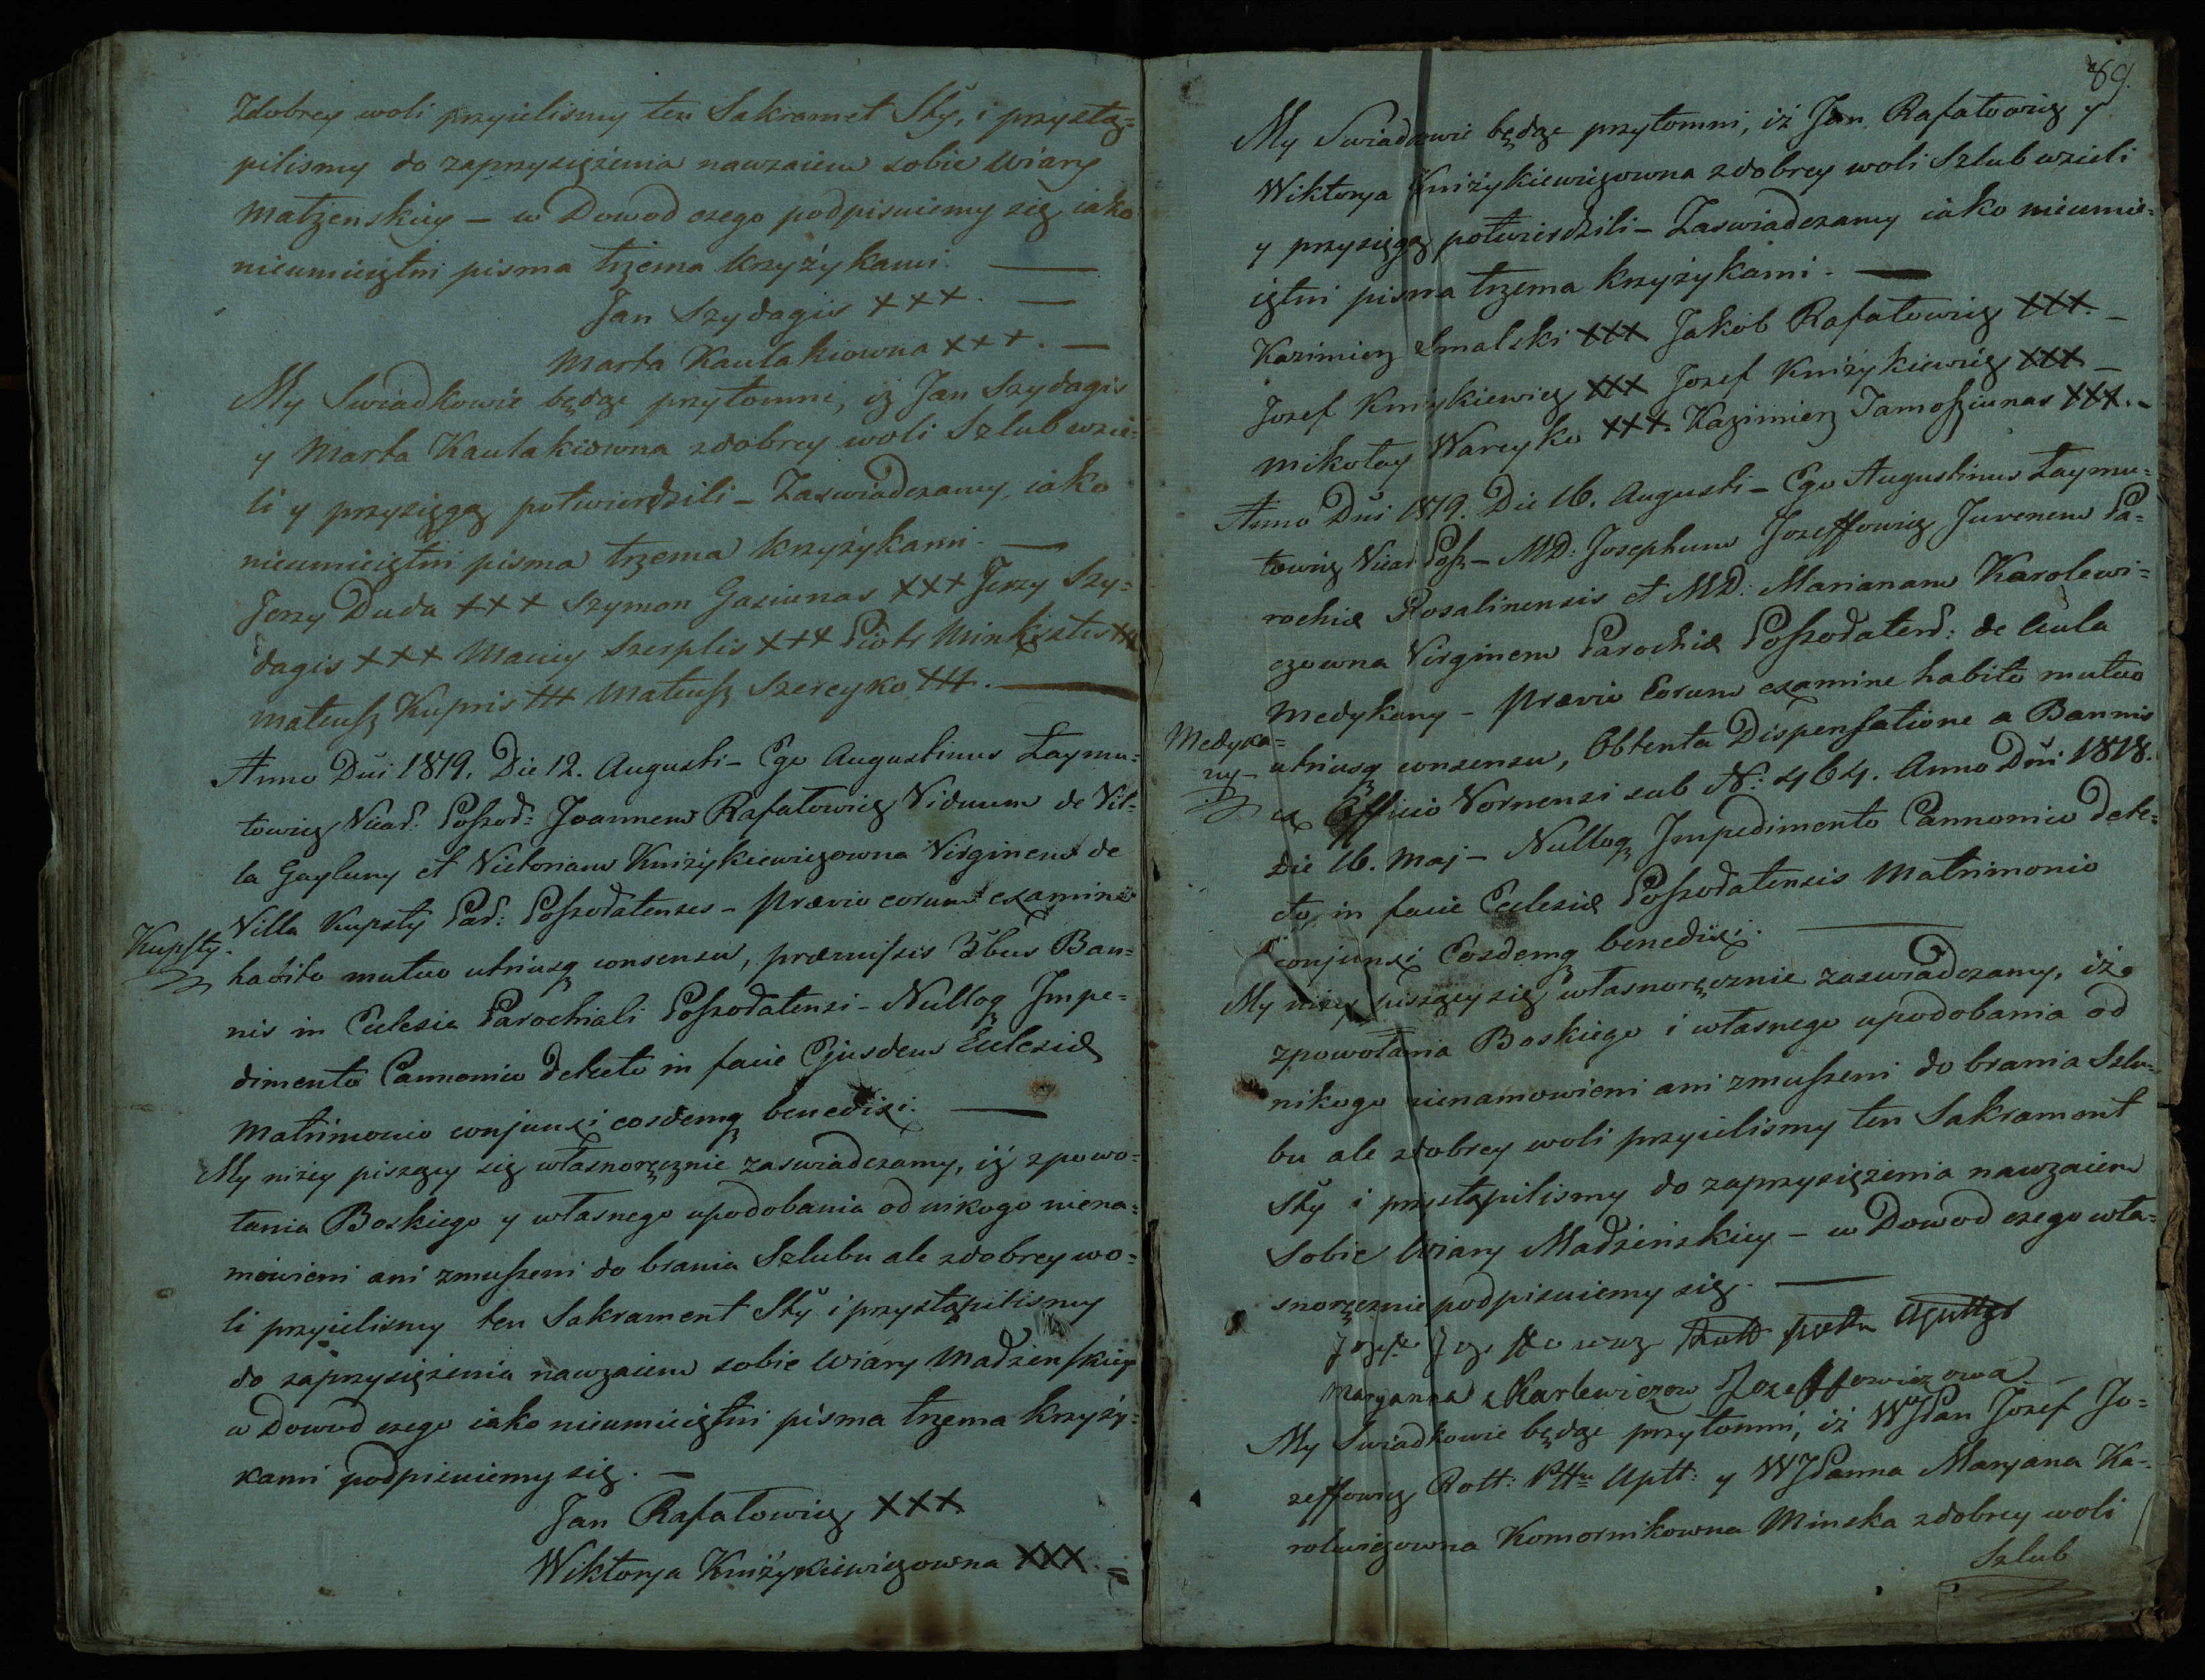 Zdobrey woli przyielismy ten Sakramet Sty, i przystą=
pilismy do zaprzysiężenia nawzaiem sobie Wiary
Małzenskiey – w Dowod czego podpisuiemy się iako
nieumieiętni pisma trzema krzyżykami. —
Jan Szydagis +++. —
Marta Kaulakiowna +++. —
My Swiadkowie będąc przytomni, iż Jan Szydagis
y Marta Kaulakiowna zdobrey woli Szlub wzie=
li y przysięgą potwierdzili – Zaswiadczamy iako
nieumieiętni pisma trzema krzyżykami. —
Jerzy Duda +++ Szymon Gasiunas +++ Jerzy Szy=
dagis +++ Maciey Szerplis +++ Piotr Minksztis +++
Mateusz Kupris +++ Mateusz Szereyko +++. —
Anno Dñi 1819. Die 12. Augusti – Ego Augustinus Łaymu=
towicz Vicar: Poszod: Joannem Rafałowicz Viduum de Vil=
la Gayluny et Victoriam Kniżykiewiczowna Virginem de
Villa Kupsty Par: Poszodatenses – Prævio eorum examine
Kupsty.
habito mutuo utriusq consensu, præmissis 3bus Ban=
nis in Eclesia Parochiali Poszodatensi – Nulloq Impe=
dimento Cannonico detecto in facie Ejusdem Eclesiæ
Matrimonio conjunxi eosdemq benedixi. —
My niżey piszący się własnoręcznie zaswiadczamy, iż zpowo=
łania Boskiego y własnego upodobania od nikogo niena=
mowieni ani zmuszeni do brania Szlubu ale zdobrey wo=
li przyielismy ten Sakrament Sty i przystąpilismy
do zaprzysiężenia nawzaiem sobie Wiary Madzenskiey
w Dowod czego iako nieumieiętni pisma trzema krzyży=
kami podpisuiemy się. —
Jan Rafałowicz XXX.
Wiktorya Kniżykiewiczowna XXX. =
89.
My Swiadkowie będąc przytomni, iż Jan Rafałowicz y
Wiktorya Kniżykiewiczowna zdobrey woli Szlub wzieli
y przysięgą potwierdzili – Zaswiadczamy iako nieumie=
iętni pisma trzema krzyżykami. —
Kazimierz Smalski XXX Jakob Rafałowicz XXX. –
Jozef Kniżykiewicz XXX Jozef Kniżykiewicz XXX –
Mikołay Wareyko XXX. Kazimierz Tamosziunas XXX. –
Anno Dñi 1819. Die 16. Augusti – Ego Augustinus Łaymu=
towicz Vicar Posz – MD: Josephum Jozeffowicz Juvenem Pa=
rochiæ Rosalinensis et MD: Marianam Karolewi=
czowna Virginem Parochiæ Poszodatens: de Aula
Medykany – Prævio Eorum examine habito mutuo
Medyka=
ny –
utriusq consensu, Obtenta Dispensatione a Bannis
ex Officio Vornensi sub N: 464. Anno Dñi 1818.
Die 16. Maj – Nulloq Impedimento Cannonico dete=
cto, in facie Eclesiæ Poszodatensis Matrimonio
conjunxi Eosdemq benedixi. —
My niżey piszący się własnoręcznie zaswiadczamy, iż
zpowołania Boskiego i własnego upodobania od
nikogo nienamowieni ani zmuszeni do brania Szlu=
bu ale zdobrey woli przyielismy ten Sakrament
Sty i przystąpilismy do zaprzysiężenia nawzaiem
Sobie Wiary Madzenskiey – w Dowod czego wła=
snoręcznie podpisuiemy się. —
Jozef Jozeffowicz
Maryanna Karlewiczow Jozeffowiczowa. –
My Swiadkowie będąc przytomni, iż WJPan Jozef Jo=
zeffowicz Rott: Ptu Uptt: y WJPanna Maryana Ka=
rolewiczowna Komornikowna Minska zdobrey woli
Szlub